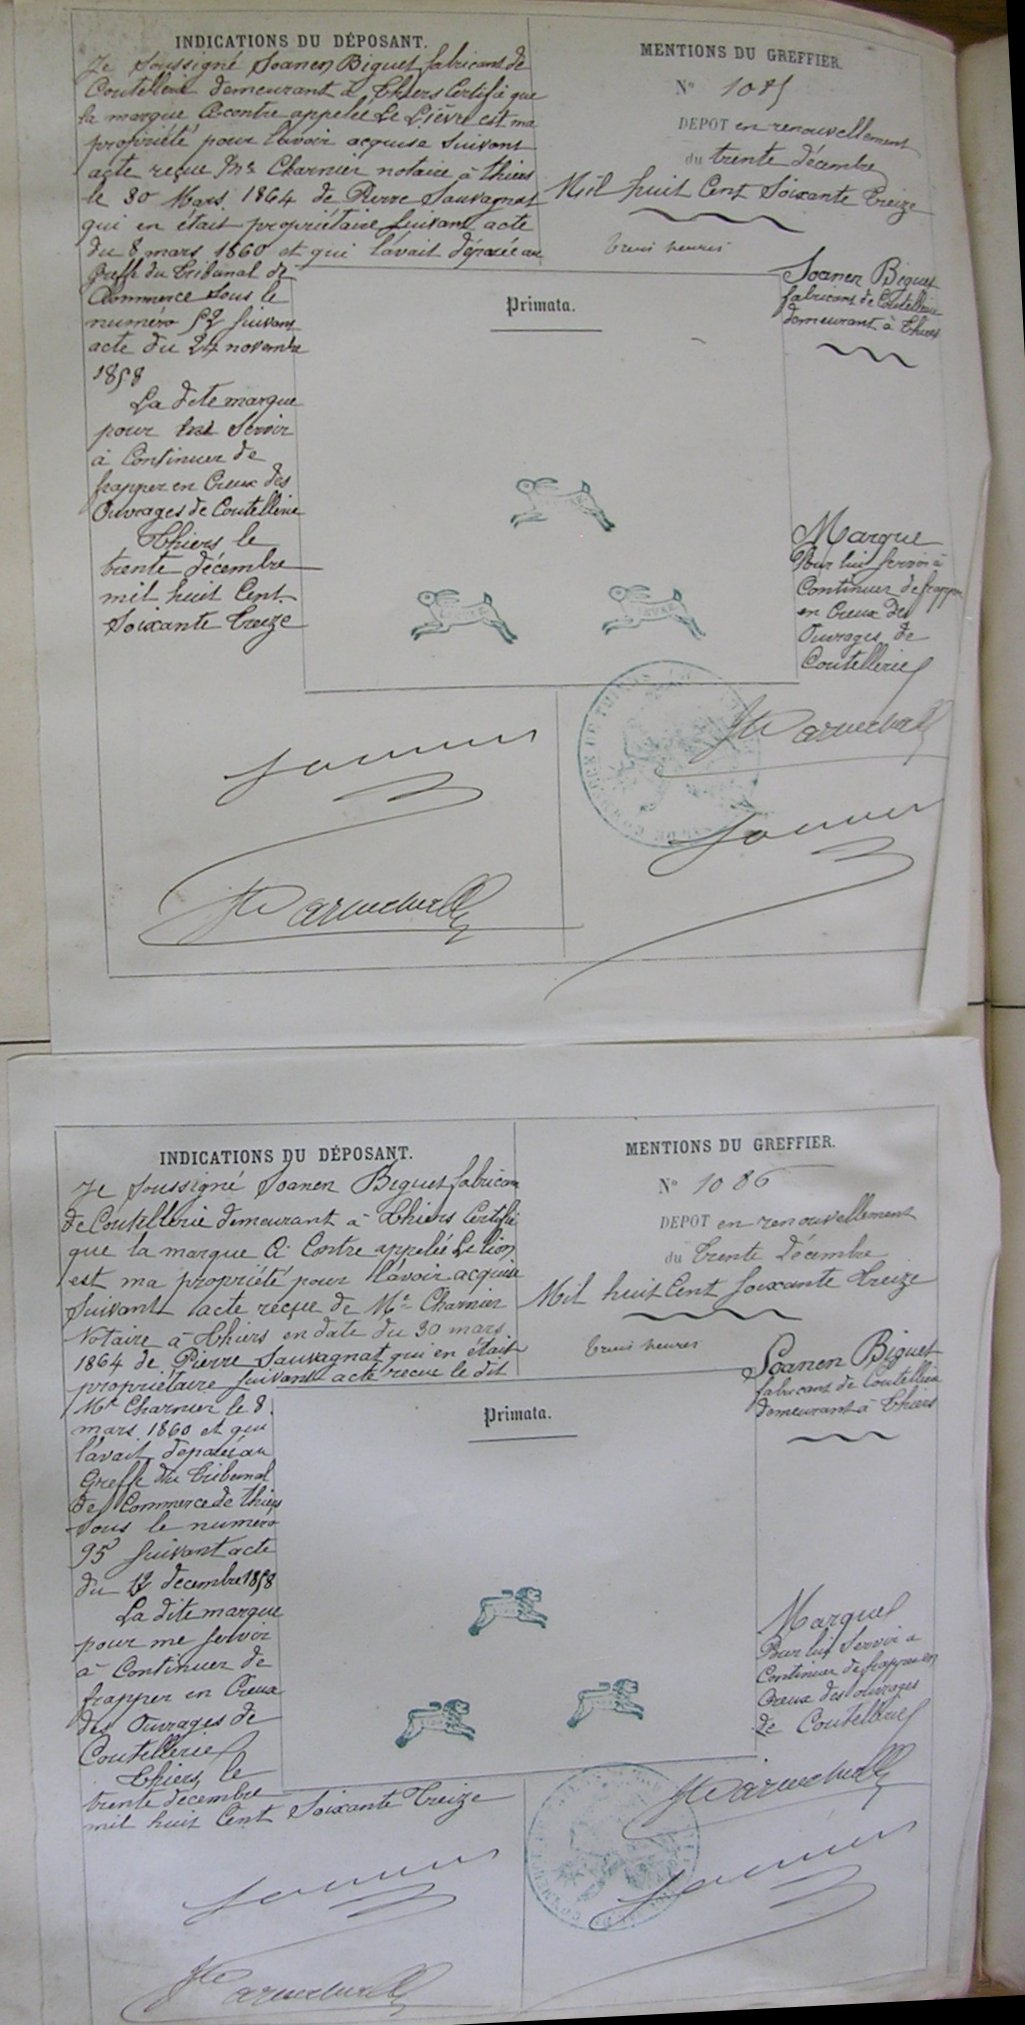 INDICATIONS DU DÉPOSANT.
Je soussigné Soanen Biguet fabricant de
Coutellerie demeurant à Thiers Certifie que
la marque Ci-contre appelée Le Lièvre est ma
propriété pour l'avoir acquise suivant
acte reçue Me Charnier notaire à Thiers
le 30 Mars 1864 de Pierre Sauvagnat
qui en était propriétaire suivant acte
du 8 mars 1860 et qui l'avait déposée au
Greffe du Tribunal de
Commerce sous le
numéro 52 suivant
acte du 24 novembre
1858
La dite marque
pour servir
à Continuer de
frapper en Creux des
Ouvrages de Coutellerie
Thiers le
trente décembre
mil huit Cent
Soixante Treize
MENTIONS DU GREFFIER.
No 1085
DEPOT en renouvellement
du trente décembre
Mil huit Cent Soixante Treize
trois heures
Soanen Biguet
fabricant de Coutellerie
demeurant à Thiers
Primata.
Marque
Pour lui servir à
Continuer de frapper
en Creux des
Ouvrages de
Coutellerie
Soanen
Soanen
INDICATIONS DU DÉPOSANT.
Je soussigné Soanen Biguet fabricant
de Coutellerie demeurant à Thiers Certifie
que la marque Ci Contre appelée Le lion
est ma propriété pour l'avoir acquise
suivant acte reçue de Me Charnier
Notaire à Thiers en date du 30 mars
1864 de Pierre Sauvagnat qui en était
propriétaire suivant acte recue le dit
Me Charnier le 8
mars 1860 et qui
l'avait déposée au
Greffe du Tribunal
de Commerce de Thiers
sous le numéro
95 suivant acte
du décembre 1858
La dite marque
pour me servir
à Continuer de
frapper en Creux
des Ouvrages de
Coutellerie
Thiers, le
trente décembre
mil huit Cent Soixante Treize
MENTIONS DU GREFFIER.
No 1086
DEPOT en renouvellement
du Trente Décembre
Mil huit Cent Soixante Treize
trois heures
Soanen Biguet
fabricant de Coutellerie
demeurant à Thiers
Primata.
Marque
Pour lui Servir a
Continuer de frapper en
Creux des ouvrages
de Coutellerie
Soanen
Soanen